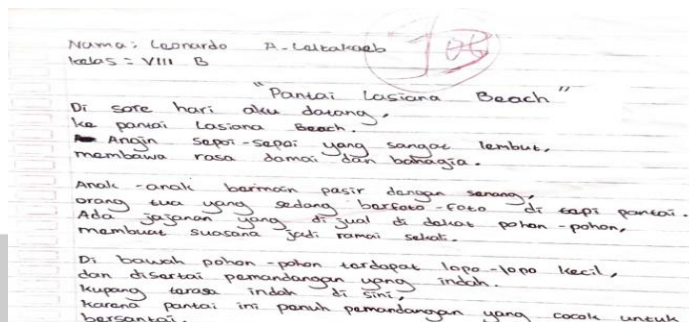 Nama: Leonardo A. Leltakaeb
kelas = VIII B
100
"Pantai Lasiana Beach"
Di sore hari aku datang,
ke pantai Lasiana Beach.
Angin sepoi-sepoi yang sangat lembut,
membawa rasa damai dan bahagia.
Anak-anak bermain pasir dengan senang,
orang tua yang sedang berfoto-foto di tepi pantai.
Ada jajanan yang di jual di dekat pohon-pohon,
membuat suasana jadi ramai sekali.
Di bawah pohon-pohon terdapat lopo-lopo kecil,
dan disertai pemandangan yang indah.
Kupang terasa indah di sini,
karena pantai ini penuh pemandangan yang cocok untuk
bersantai.